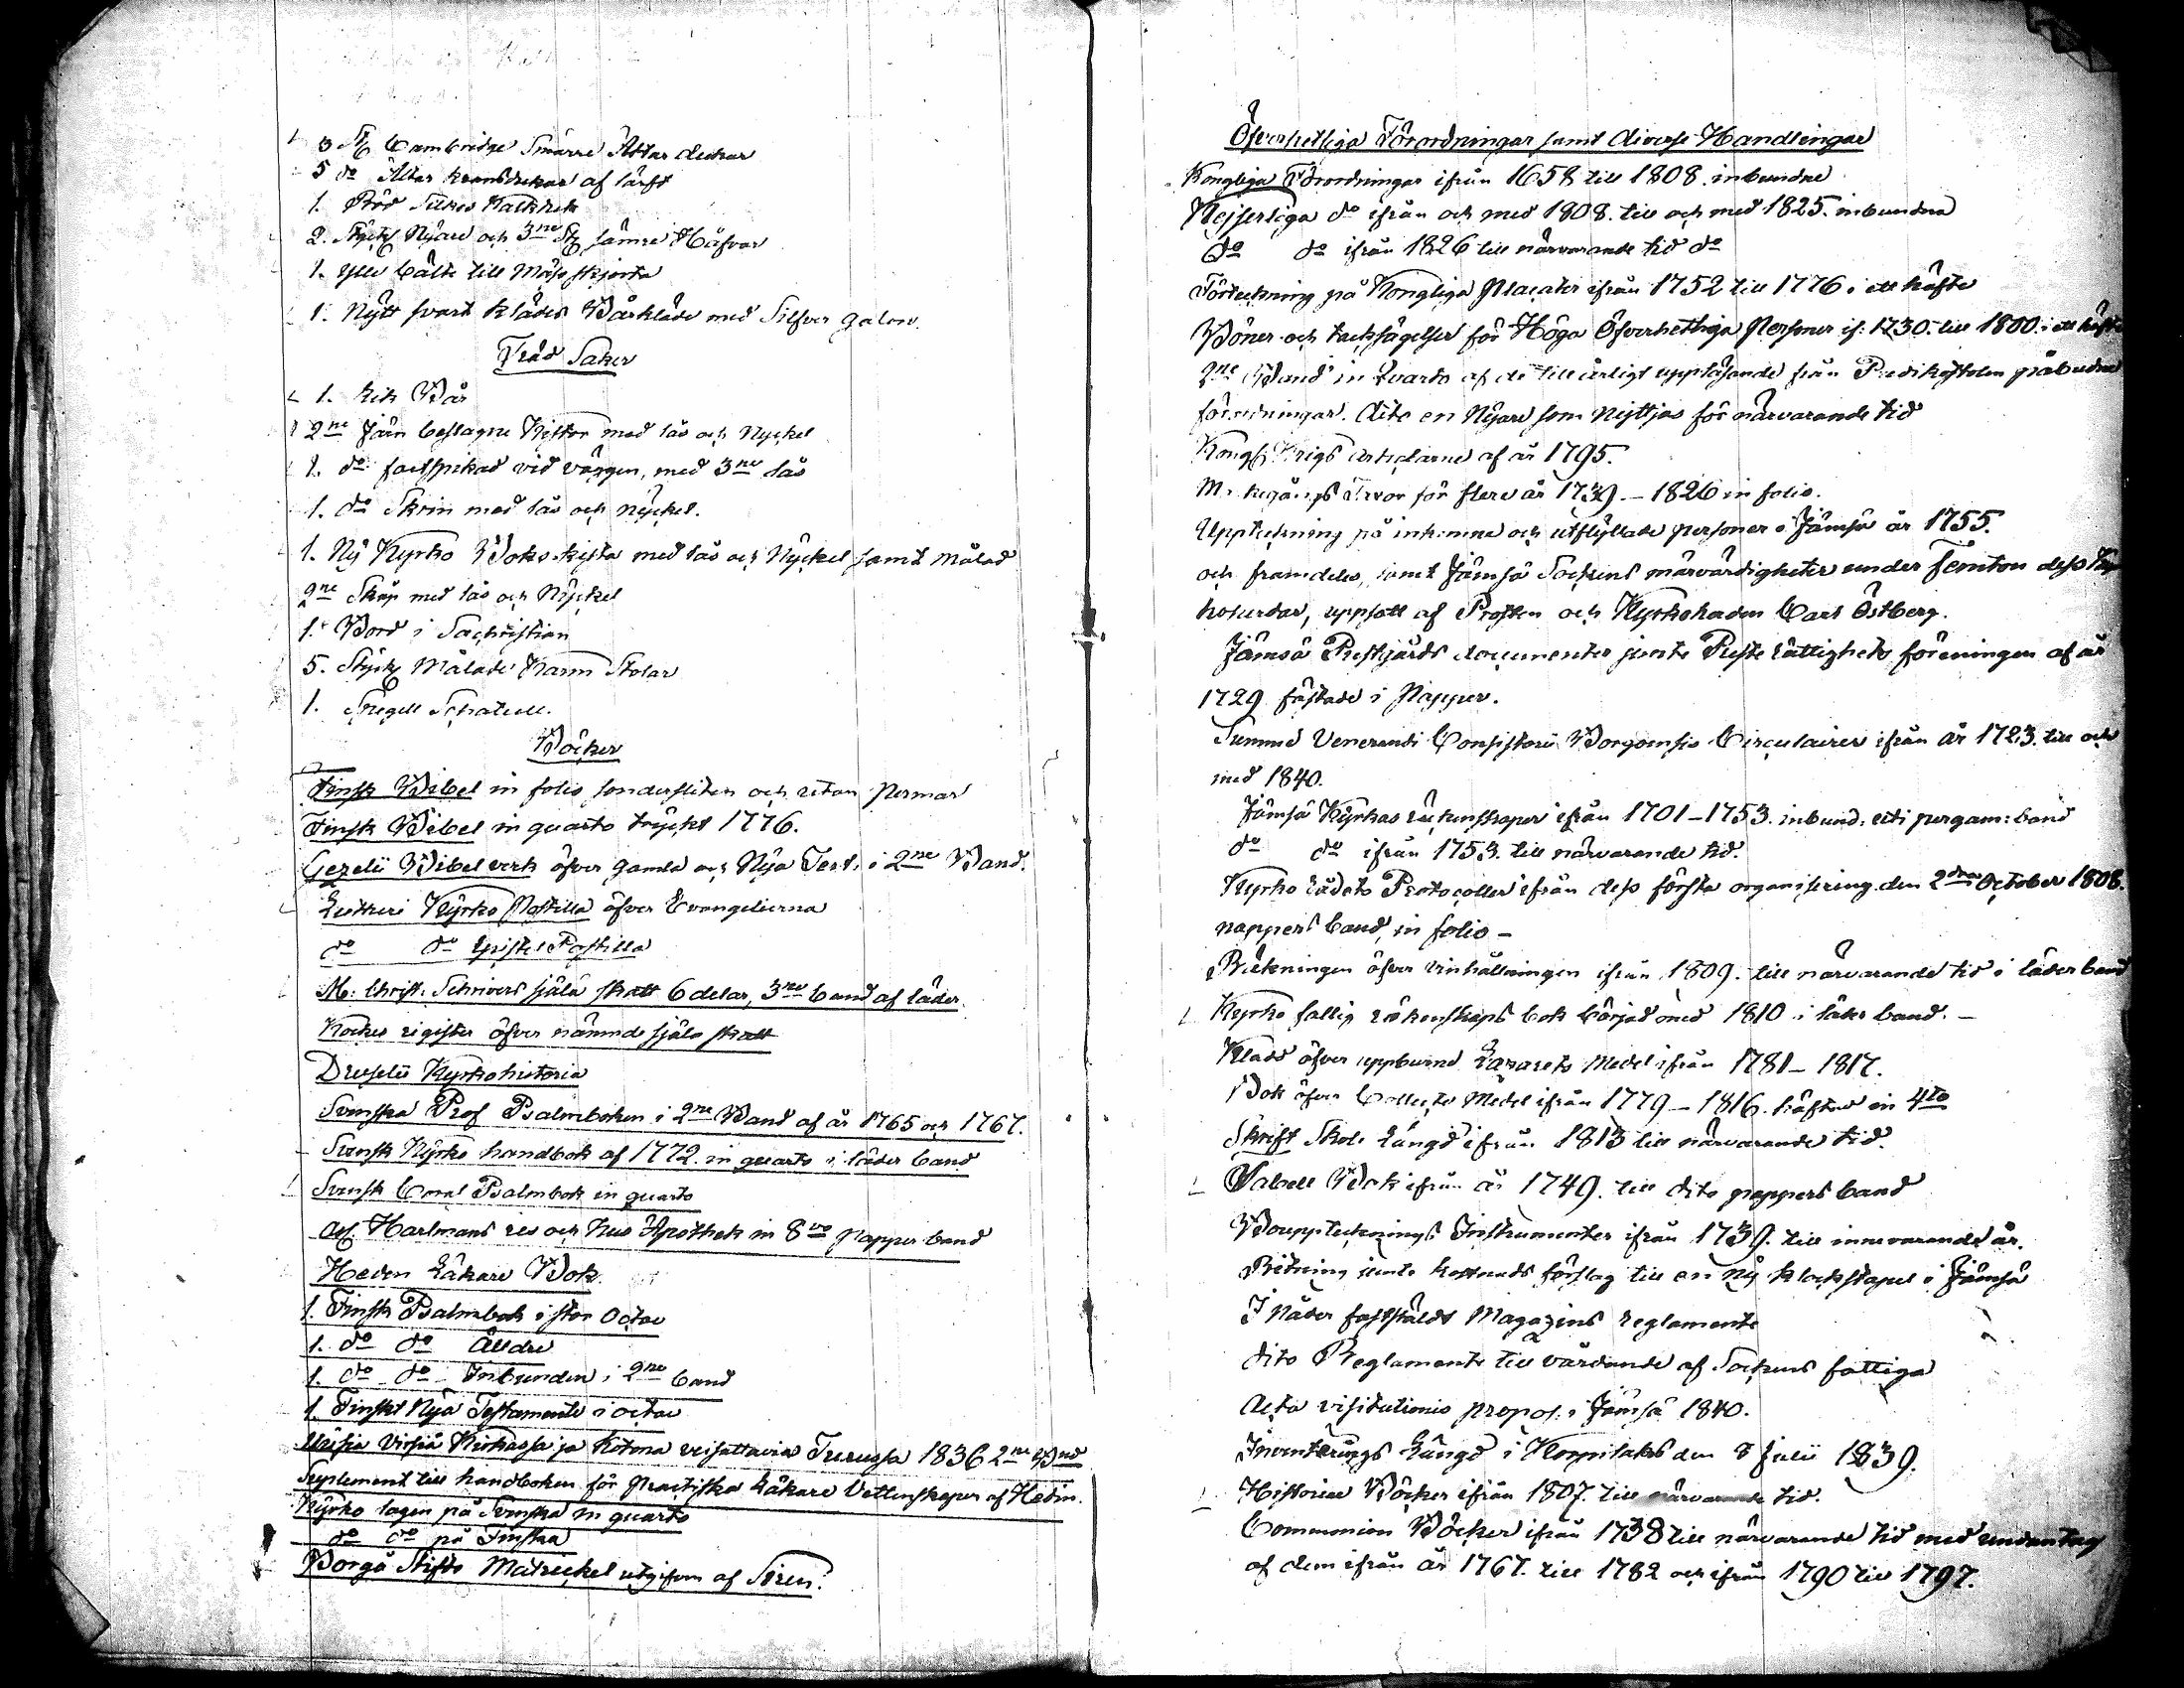 3 St. Cambridge Smärre Altar dukar
5 do Altar af lärft
1. Röd Silkes Kalkduk
2. Stycke Nyare och 3ne St. sämre Håfvar
1. ylle bälte till Mässskjorta
1. Nytt svart klädes Bårkläde med Silfver galon.
Träd Saker
1. Lik Bår
2ne Järn beslagne Kistor med lås och Nyckel
1. do fastspikad vid väggen, med 3ne lås
1. do Skrin med lås och nyckel.
1. Ny Kyrko Boks-kista med lås och Nyckel samt målad
2ne Skåp med lås och Nyckel
1. Bord i Sachristian
5. Stycke Målade Karm Stolar
1. Spegell Schatull.
Böcker
Finsk Bibel in folio söndersliten och utan permar
Finsk Bibel in quarto tryckt 1776.
Gezelii Bibel verk öfver Gamla och Nya Test. i 2ne Band.
Lutheri Kyrko Postilla öfver Evangelierna
do do Epistel Postilla
M: Christ: Schrivers själa skatt 6 delar, 3ne band af läder.
Kockes register öfver nämnde själa skatt
Dreselii Kyrkohistoria
Svenska Prof Psalmboken i 2ne Band af år 1765 och 1767.
Svensk Kyrko handbok af 1772. in quarto i läder band
Svensk Coral Psalmbok in quarto
Ass. Hartmans res och hus Apothek in 8vo papper band
Hedin Läkare Bok.
1. Finsk Psalmbok i stor Octav
1. do do Älldre
1. do do Inbunden i 2ne band
1. Finskt Nya Testamente i octav
Uusia Virsiä Kirkossa ja Kotona veisattavia Turussa 1836 2ne Bnd
Suplement till handboken för Practiska Läkare Vettenskapen af Hedin.
Kyrko lagen på Svenska in quarto
do do på Finska
Borgå Stifts Matrickel utgifven af Siren.
Öfverhetliga Förordningar samt diverse Handlingar
Kongliga Förordningar ifrån 1658 till 1808. inbundne
Kejserliga do ifrån och med 1808. till och med 1825. inbundna
do do ifrån 1826 till närvarande tid do
Förteckning på Kongliga Placater ifrån 1752 till 1776 i ett häfte
Böner och tacksägelser för Höga Öfverhetliga Personer if: 1730. till 1800. i ett häfte
2ne Band in Quarto af de till årligt uppläsande från Predikostolen påbudne
förordningar. dito en Nyare som nyttjas för närvarande tid
Kongl. Krigs Articlarne af år 1795.
Markegångs Taxor för flere år 1739. – 1826 in folio.
Uppteckning på inkomne och utflyttade personer i Jämsä år 1755.
och framdeles, samt Jämsä Sockens märvärdigheter under femton dess Kyr
koherdar, uppsatt af Prosten och Kyrkoherden Carl Östberg.
Jämsä Prestgårds documenter jemte Preste rättighets föreningen af år
1729 fästade i Papper.
Summe Venerandi Consistorii Borgoensis Circulairer ifrån år 1723. till och
med 1840.
Jämsä Kyrkas räkenskaper ifrån 1701–1753. inbund: uti pergam: band
do do ifrån 1753. till närvarande tid.
Kyrko Rådets Protocoller ifrån dess första organisering den 2dra October 1808.
pappers band, in folio –
Räkningen öfver vinhållningen ifrån 1809. till närvarande tid i läder band
Kyrko fattig räkenskaps bok börjad med 1810 i läder band. –
Kladd öfver uppburne Lazarets Medel ifrån 1781 – 1817.
Bok öfver Collecte Medel ifrån 1779 – 1816. häftad in 4to
Skrift Skole Längd ifrån 1813 till närvarande tid.
Tabell Bok ifrån år 1749. till dito pappers band
Bouppteknings Instrumenter ifrån 1739. till innevarande år.
Ritning jemte kostnads förslag till en ny klockstapel i Jämsä
I Nåder fastställdt Magazins reglemente
dito Reglemente till vårdande af Sockens fattiga
Acta visitationis præpos: i Jämsä 1840.
Inventerings Längd i Koppilaks den 8 Julii 1839.
Historiæ Böcker ifrån 1807. till närvarande tid.
Communion Böcker ifrån 1738 till närvarande tid med undantag
af dem ifrån år 1767. till 1782 och ifrån 1790 till 1797.